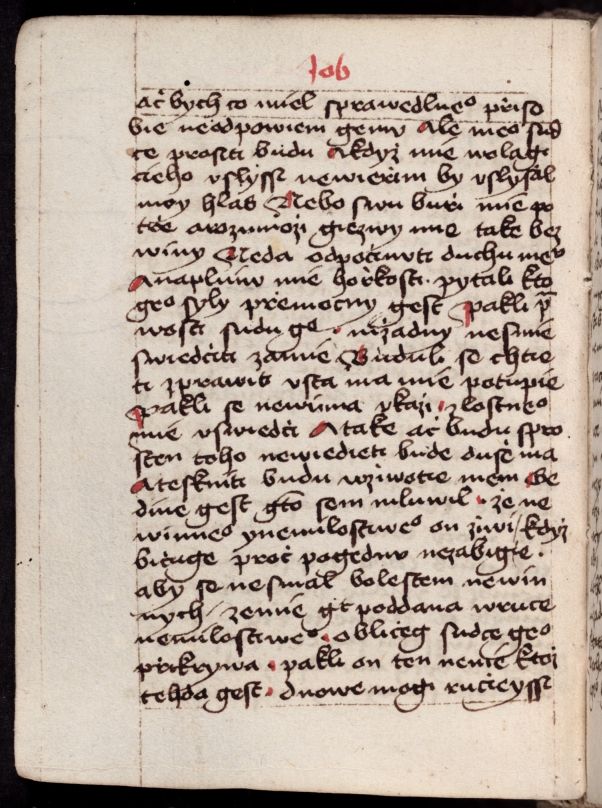 Job
ač bych co miel sprawedlneº přiso
bie neodpowiem gemu Ale meº sud
ce prositi budu Akdyż mie wolagi
cieho vslyssi newierzim by vslyšal
moy hlas Nebo swu buři mie po
tře arozmnoži giezwy mie take bez
winy Neda odpočinuti duchu meº
Anaplniw mie hořkosti pytali kto
geº syly přemocny gest Pakli p̄
wosti sudu geº niżadny nesmie
swiedčiti zamie Buduli se chtie
ti zprawiti vsta ma mie potupie
Pakli se newinna vkazi zlostneº
mie vswiedči A take ač budu spro
sten toho newiedieti bude duše ma
A teskniti budu wžiwotie mem Ge
dine gest gťo sem mluwil że ne
winneº ynemilostiweº on zuwi / kdyż
bičuge proč pogednu nezabigie
aby se nesmal bolestem newin
nych / zemie gt poddana wruce
nemilostiweº obličeg sudce geº
přikrywa pakli on ten nenie ktož
tehda gest dnowe mogi ručieyssi